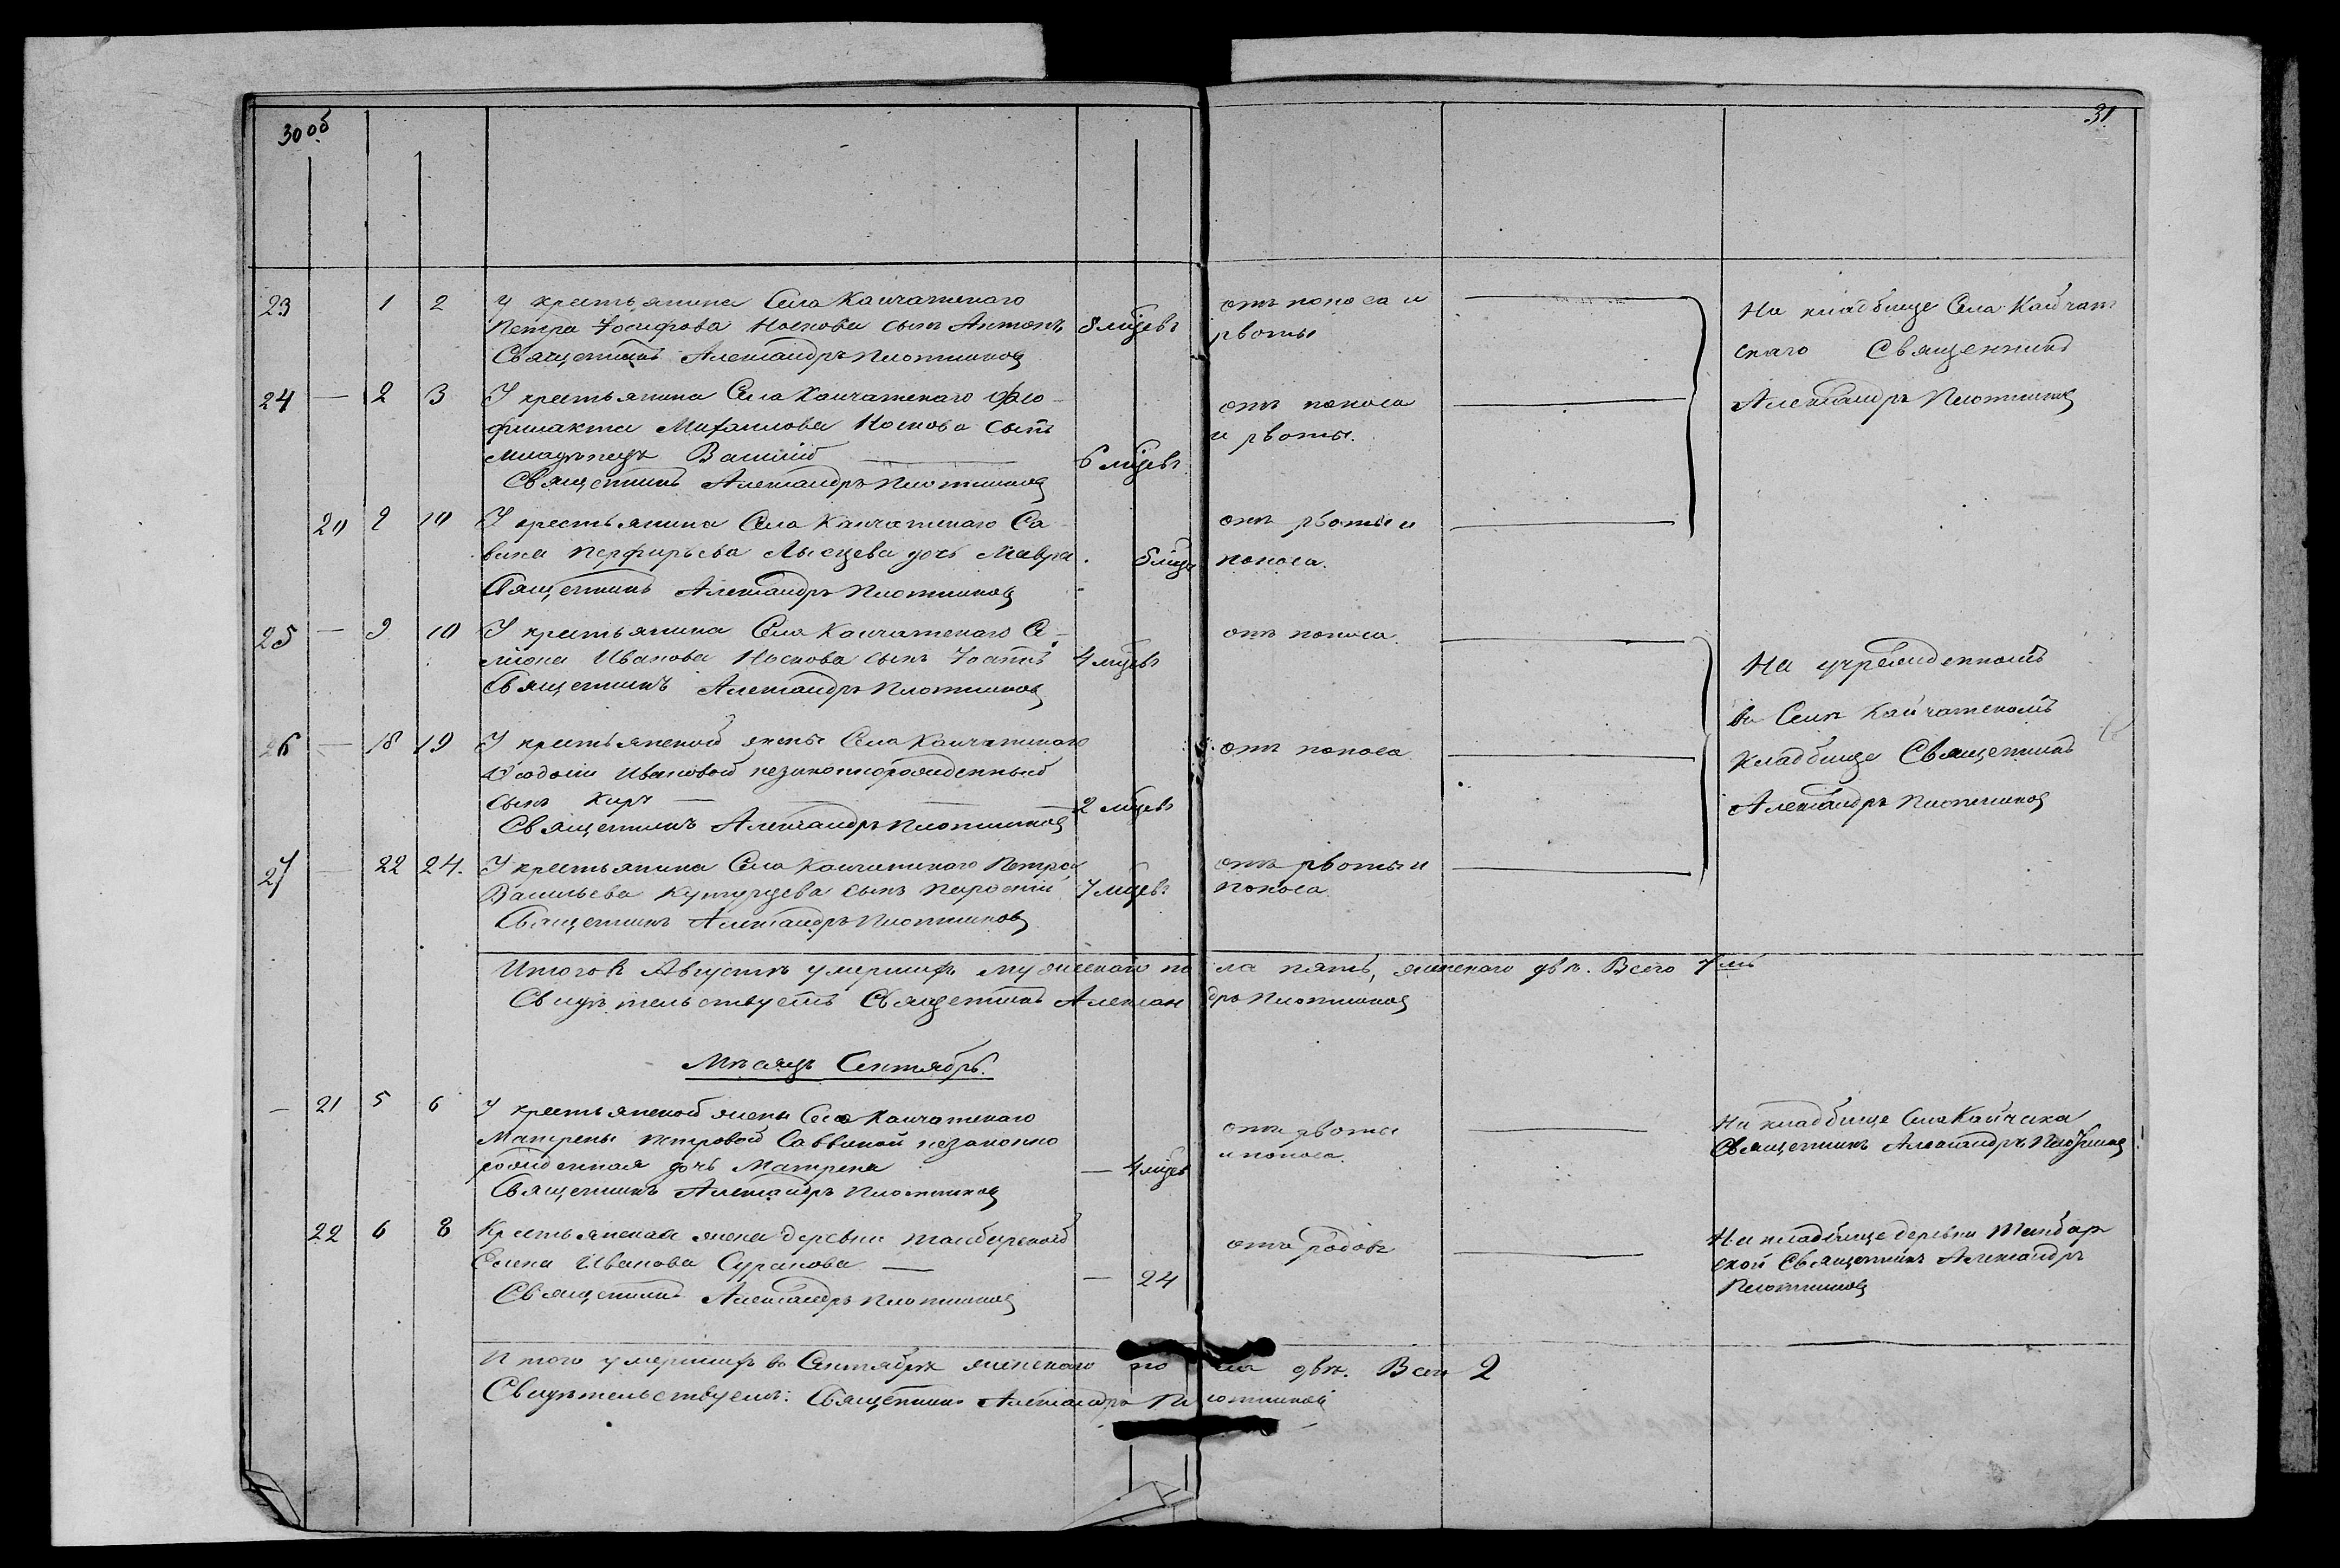 30 об
31
23 1 2 У крестьянина Села Кайчатскаго
Петра Іосифова Носкова сынъ Антонъ 8 мцевъ
Священникъ Александръ Плотниковъ
отъ поноса и
рвоты
На кладбище Села Кайчат
скаго Священникъ
Александръ Плотниковъ
24 — 2 3 У крестьянина Села Кайчатскаго Фео
филакта Михаилова Носкова сынъ
младенецъ Василій — 6 мцевъ
Священникъ Александръ Плотниковъ
отъ поноса
и рвоты.
20 9 10 У крестьянина Села Кайчатскаго Са
вина Перфирьева Лысцева дочь Мавра. 5 мцв
Священникъ Александръ Плотниковъ
отъ рвоты и
поноса.
25 — 9 10 У крестьянина Села Кайчатскаго Си
міона Иванова Носкова сынъ Іоаннъ 4 мцевъ
Священникъ Александръ Плотниковъ
отъ поноса.
На учрежденномъ
въ Селѣ Кайчатскомъ
кладбище Священникъ
Александръ Плотниковъ
26 — 18 19 У крестьянской жены Села Кайчатскаго
Ѳеодосіи Ивановой незаконнорожденный
сынъ Киръ — 2 мцевъ
Священникъ Александръ Плотниковъ
отъ поноса
27 — 22 24. У крестьянина Села Кайчатскаго Петра
Васильева сынъ 7 мцевъ
Священникъ Александръ Плотниковъ
отъ рвоты и
поноса
Итого въ Августѣ умершихъ мужескаго пола пять, женскаго двѣ. Всего 7мь
Свидѣтельствуетъ Священникъ Александръ Плотниковъ
Мѣсяцъ Сентябрь.
— 21 5 6 У крестьянской жены Села Кайчатскаго
Матрены Петровой Саввиной незаконно
рожденная дочь Матрена — 4 мцев
Священникъ Александръ Плотниковъ
отъ рвоты
и поноса.
На кладбище Села Кайчака
Священникъ Александръ Плотниковъ
22 6 8 Крестьянская жена деревни
Елена Иванова Суранова — — 24
Священникъ Александръ Плотниковъ
отъ родовъ
На кладбище деревни Тамбар
ской Священникъ Александръ
Плотниковъ
Итого умершихъ въ Сентябрѣ женскаго пола двѣ. Всего 2
Свидѣтельствуетъ: Священникъ Александръ Плотниковъ